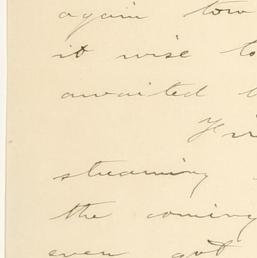 again tow
it wise to
awaited
streaming
the coming
even got